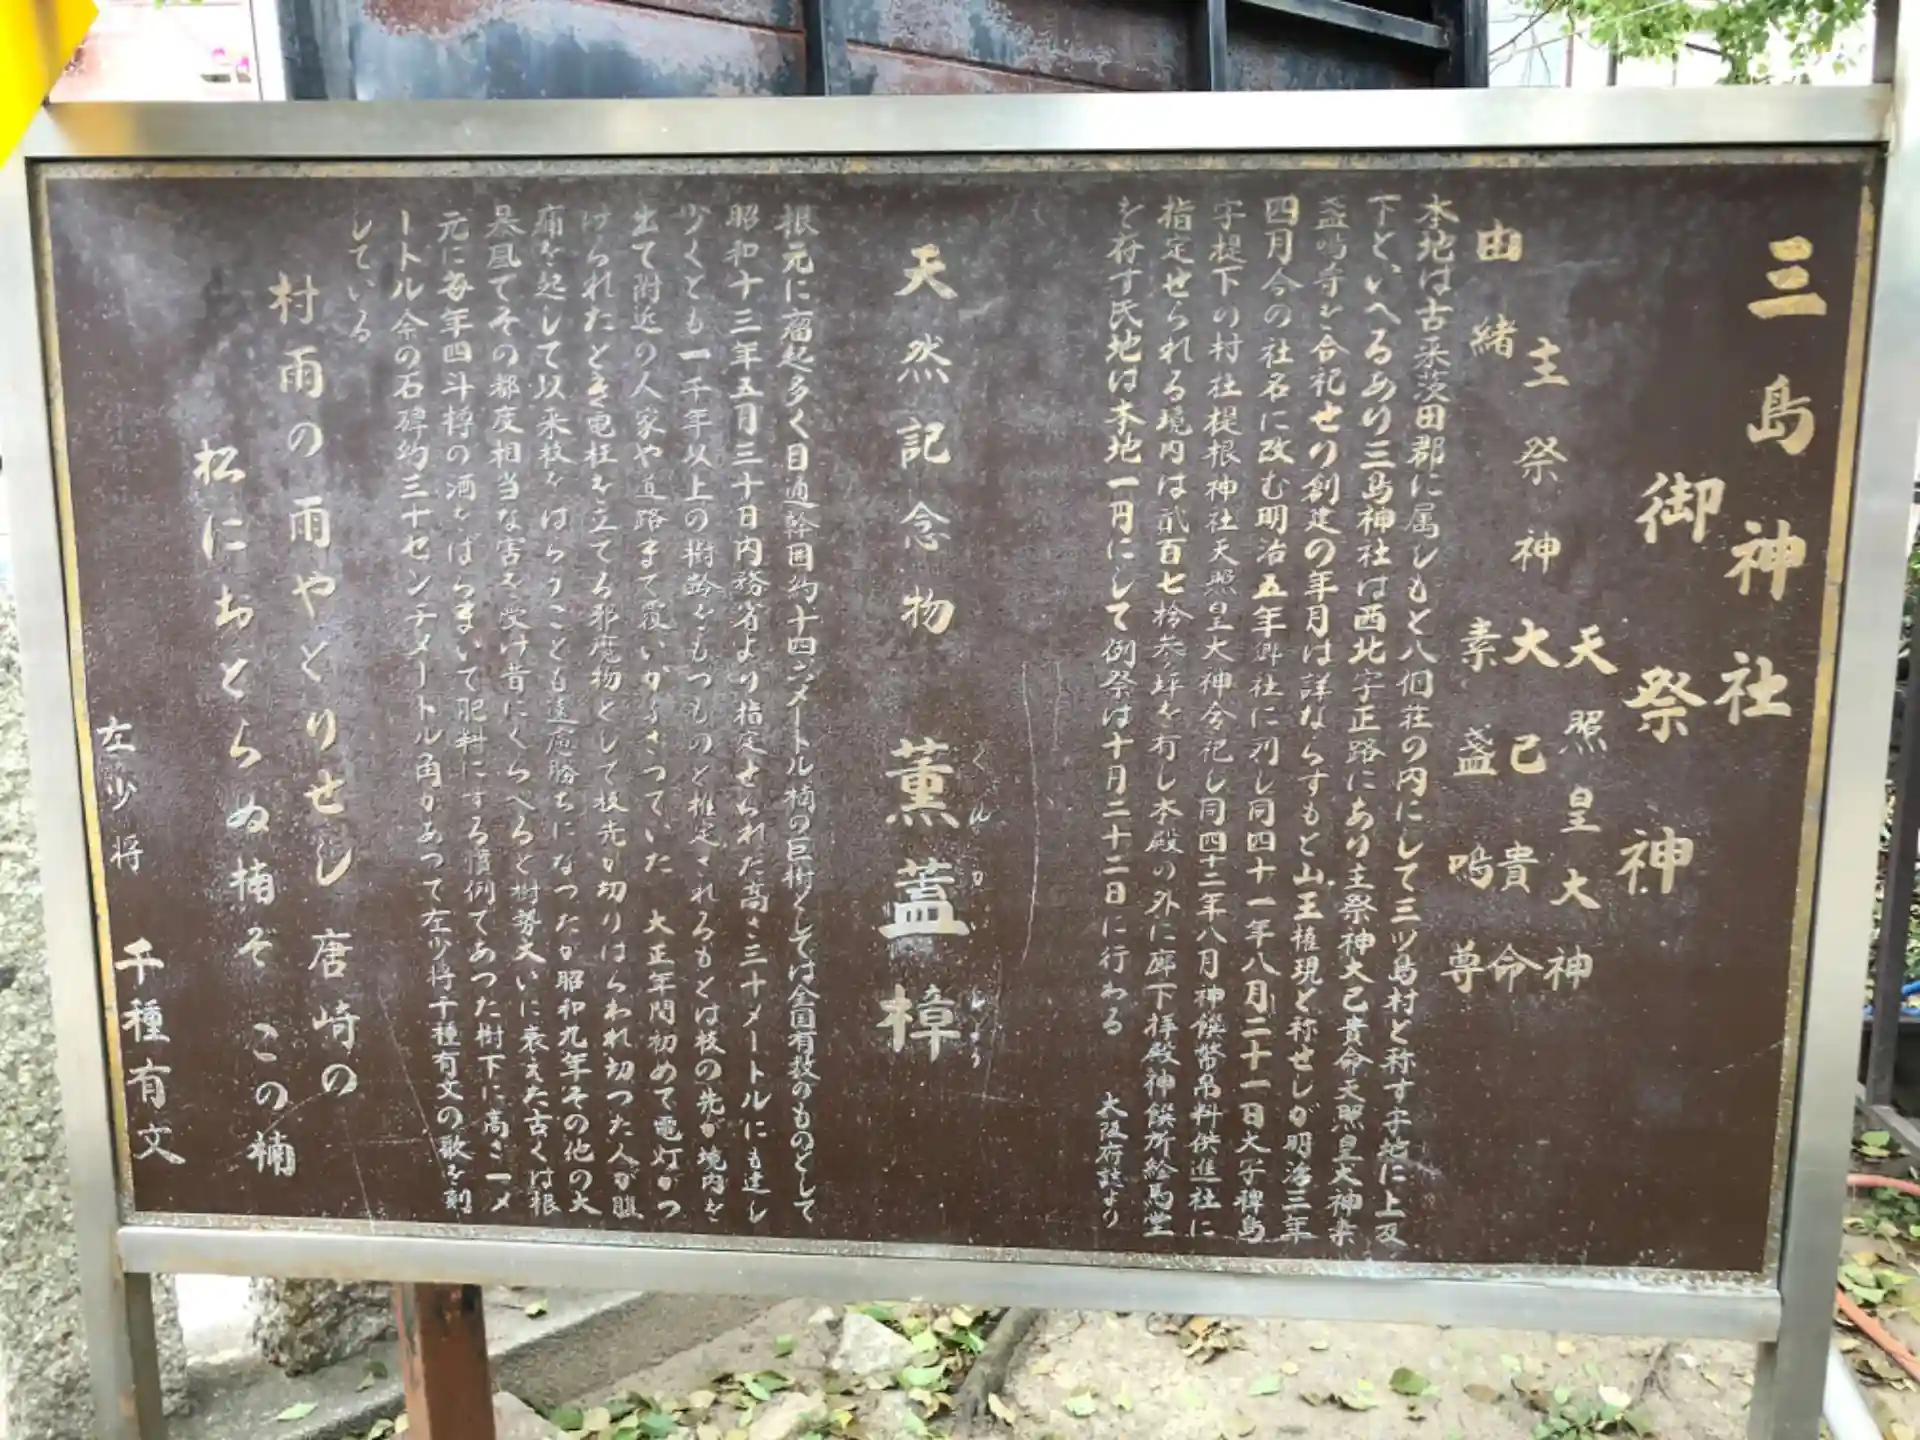 三島神社
御祭神
天照皇大神
主祭神 大己貴命
素盞嗚尊
由緒
本地は古来茨田郡に属しもと八個荘の内にして三ツ島村と称す字地に上反
下といへるあり三島神社は西北字正路にあり主祭神大己貴命天照皇大神素
盞嗚尊を合祀せり創建の年月は詳ならすもと山王権現と称せしが明治三年
四月今の社名に改む明治五年郷社に列し同四十一年八月二十一日大字稗島
字堤下の村社堤根神社天照皇大神合祀し同四十二年八月神饌幣帛料供進社に
指定せられる境内は貳百七拾参坪を有し本殿の外に廊下拝殿神饌所絵馬堂
を存す氏地は本地一円にして例祭は十月二十二日に行わる 大阪府誌より
天然記念物 薫蓋樟
くんがいしょう
根元に瘤起多く目通幹囲約十四メートル楠の巨樹としては全国有数のものとして
昭和十三年五月三十日内務省より指定せられた高さ三十メートルにも達し
少くとも一千年以上の樹齢をもつものと推定されるもとは枝の先が境内を
出て附近の人家や道路まで覆いかぶさつていた 大正年間初めて電灯がつ
けられたとき電柱を立てる邪魔物として枝先が切りはらわれ切つた人が腹
痛を起して以来枝をはらうことも遠慮勝ちになつたが昭和九年その他の大
暴風でその都度相当な害を受け昔にくらべると樹勢大いに衰えた古くは根
元に毎年四斗樽の酒をばらまいて肥料にする慣例であつた樹下に高さ一メ
ートル余の石碑約三十センチメートル角があつて左少将千種有文の歌を刻
している
村雨の雨やとりせし唐崎の
松におとらぬ楠ぞ この楠
左少将 千種有文